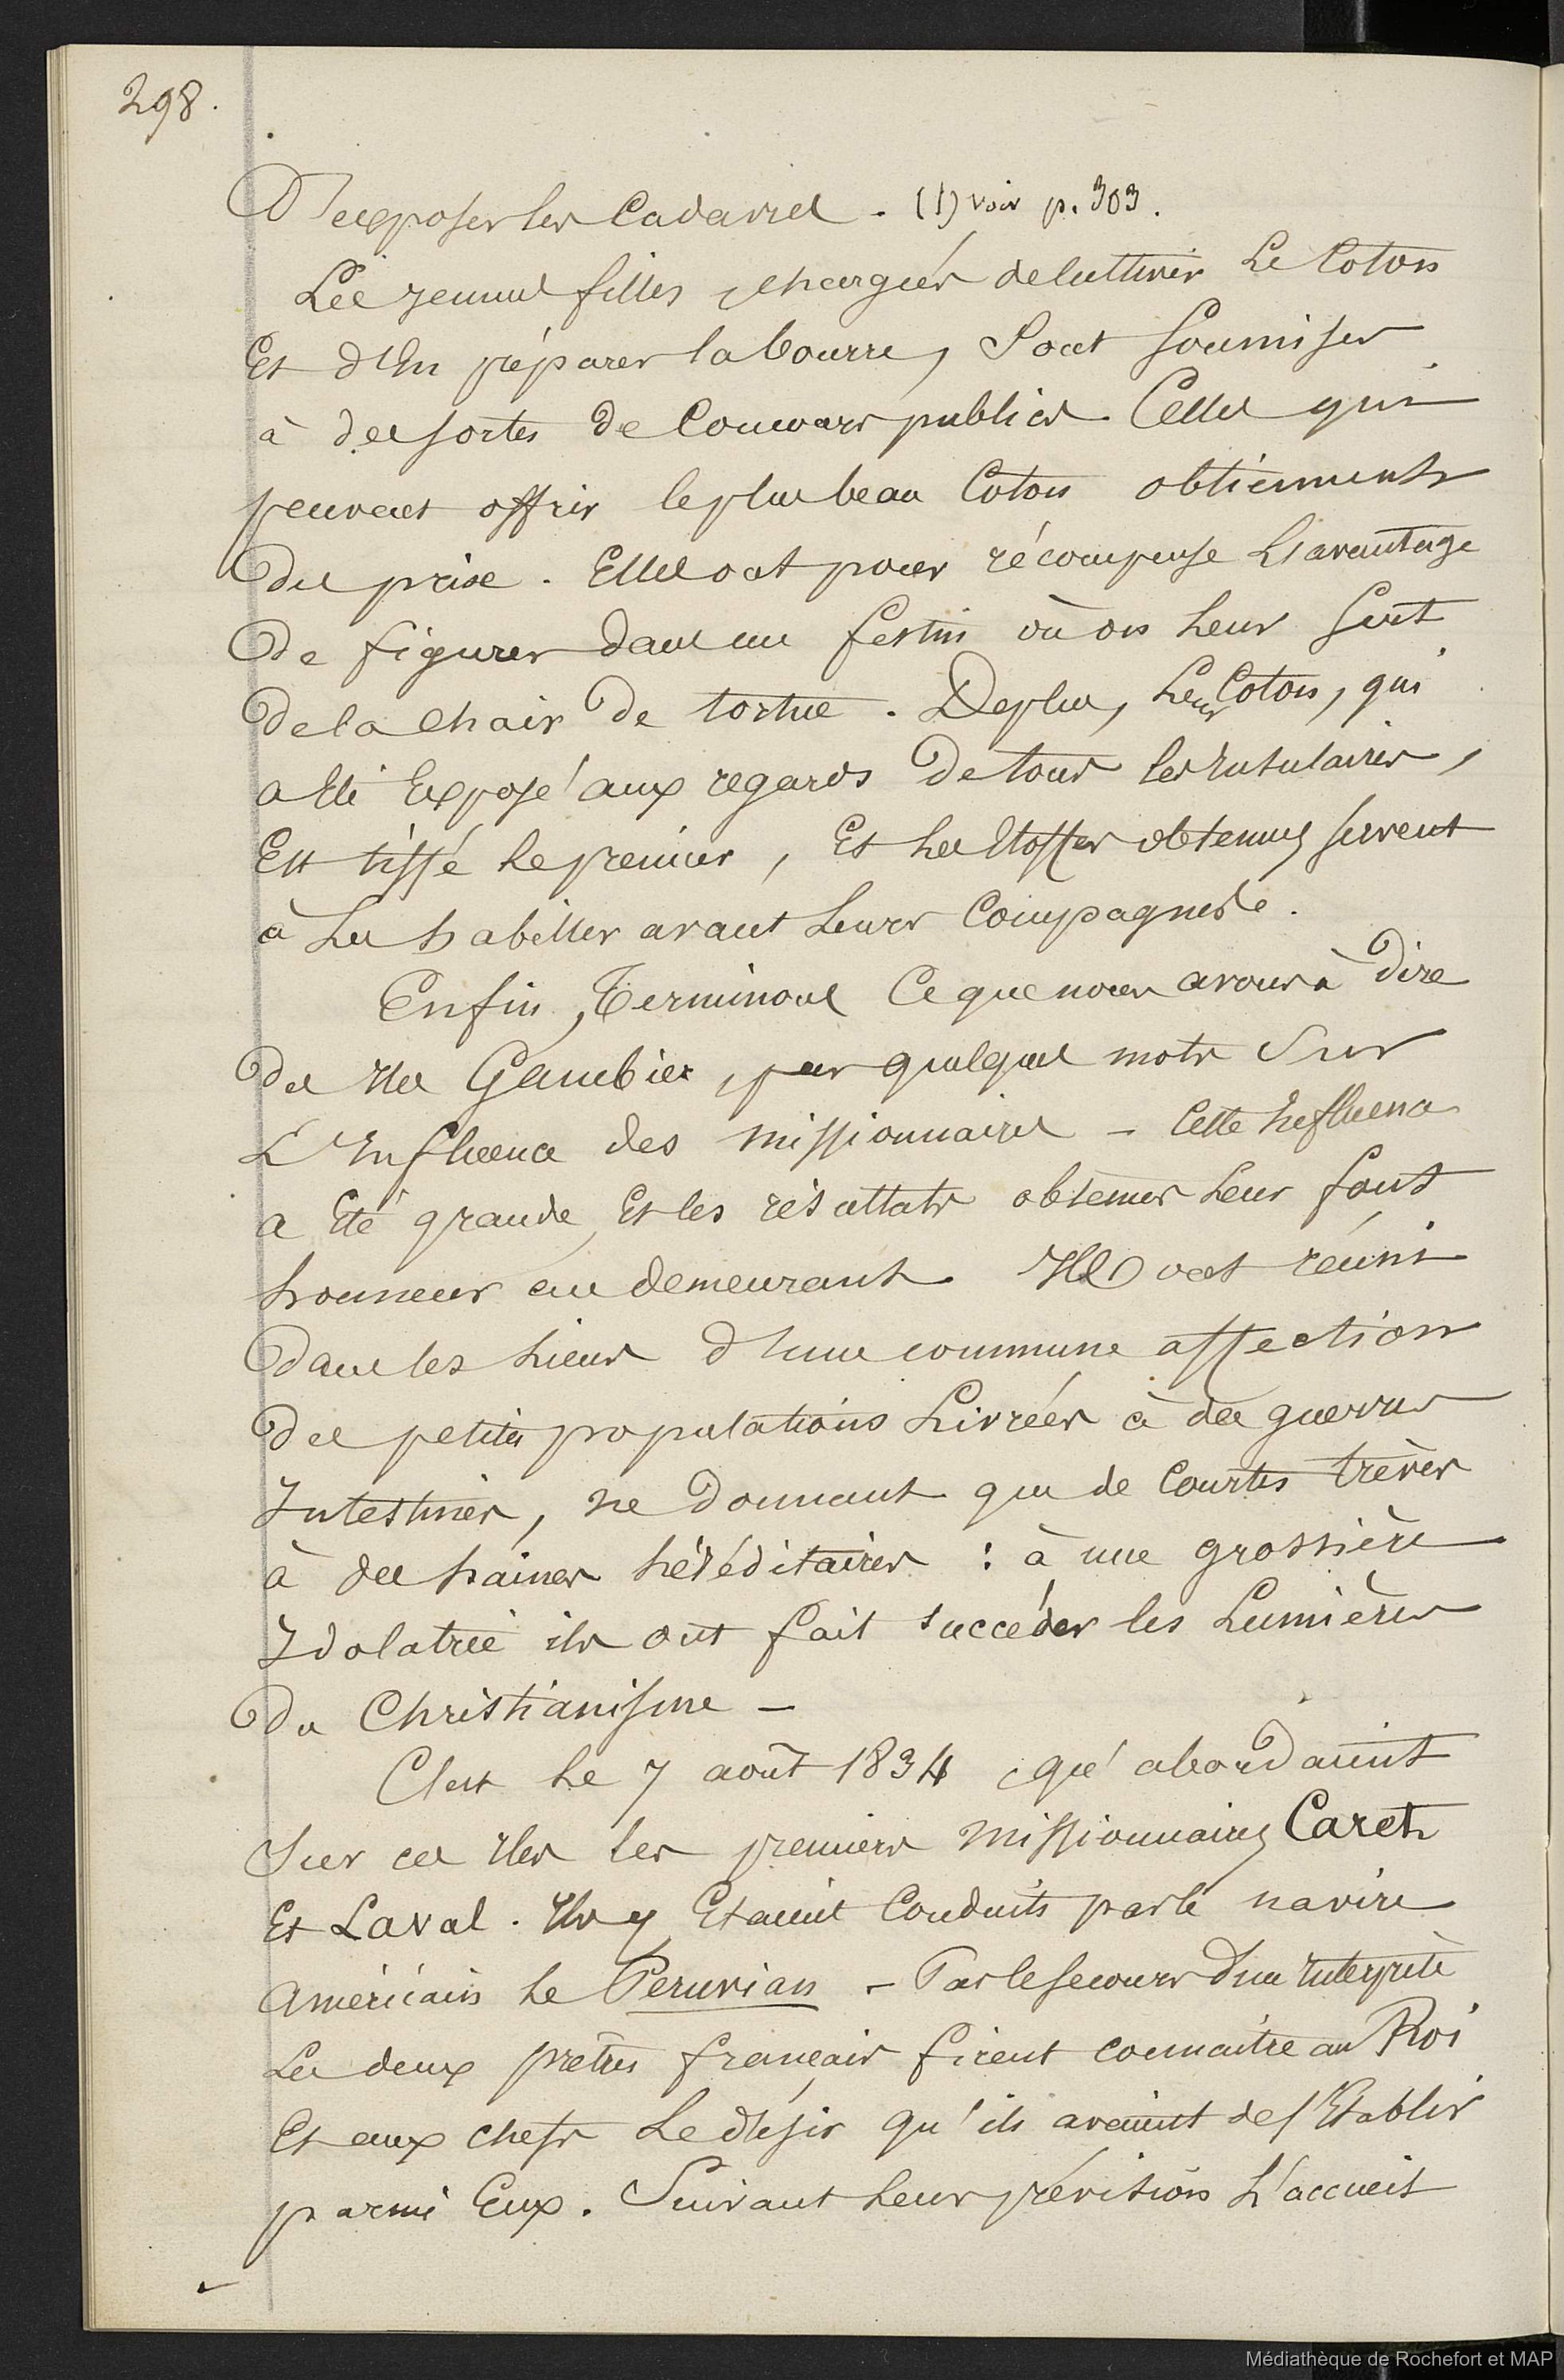 298.
D'exposer les Cadavres. (1) voir p. 303.
Les jeunes filles, chargées de cultiver Le Coton
Et d'En préparer la bourre, Sont Soumises
à des sortes de Concours publics. Celles qui
peuvent offrir le plus beau Coton obtiennent
Des prix. Elles ont pour récompense L'avantage
De figurer dans un festin où on Leur Sert
De la Chair De tortue. De plus, Leur Coton, qui
a Eté Exposé aux regards De tous les Insulaires,
Est tissé le premier, Et Les Etoffes obtenues servent
à Les habiller avant Leurs Compagnes.
Enfin, Terminons Ce que nous avons à Dire
Des Iles Gambier, par quelques mots Sur
L'Influence des missionnaires - Cette Influence
a Eté grande, Et les résultats obtenus Leur font
honneur au demeurant. Ils ont réuni
Dans les Liens d'une commune affection
Des petites populations Livrées à des guerres
Intestines, ne Donnant que de Courtes trêves
à des haines héréditaires : à une grossière
Idolatrie ils ont fait succéder les Lumières
Du Christianisme -
C'est Le 7 août 1834 que abordaient
Sur ces Iles les premiers Missionnaires Caret
Et Laval. Ils y Etaient Conduits par le navire
Américain Le Peruvian - Par le secours d'un Interprète
Les deux prêtres français firent connaitre au Roi
Et aux chefs Le désir qu'ils avaient de s'Etablir
parmi Eux. Suivant Leurs prévisions L'accueil
Médiathèque de Rochefort et MAP